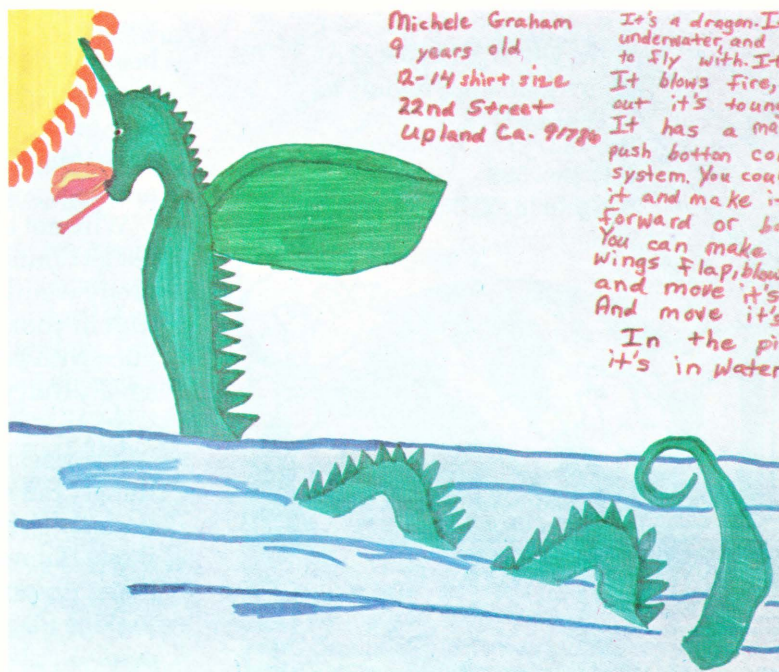 Michele Graham
9 years old
12-14 shirt size
22nd Street
Upland Ca. 91786
It's a dragon.
underwater, and
to fly with.
It blows fire,
out it's
It has a
push botton
system. You
it and make
forward or
You can make
wings flap,
and move it's
And move it's
In the
it's in water